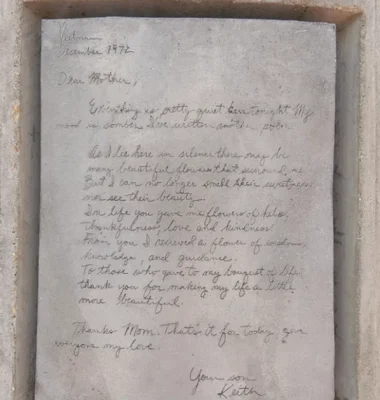 Vietnam
December 1972
Dear Mother,
Everything is pretty quiet here tonight. My
mood is somber. I've written another poem.
As I lie here in silence there may be
many beautiful flowers that surround me
But I can no longer smell their sweetness
nor see their beauty.
In life you gave me flowers of
thankfulness, love and kindness
From you I received a flower of wisdom,
knowledge, and guidance.
To those who gave to my bouquet of life
thank you for making my life a little
more beautiful.
Thanks Mom. That's it for today, give
everyone my love.
Your son
Keith